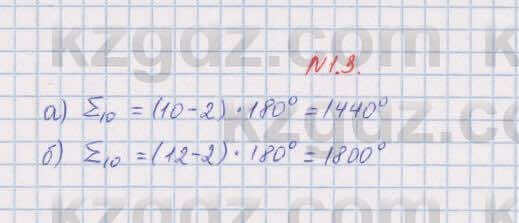 kzgdz.com
N1.3.
а) Σ₁₀ = (10-2) · 180° = 1440°
б) Σ₁₀ = (12-2) · 180° = 1800°